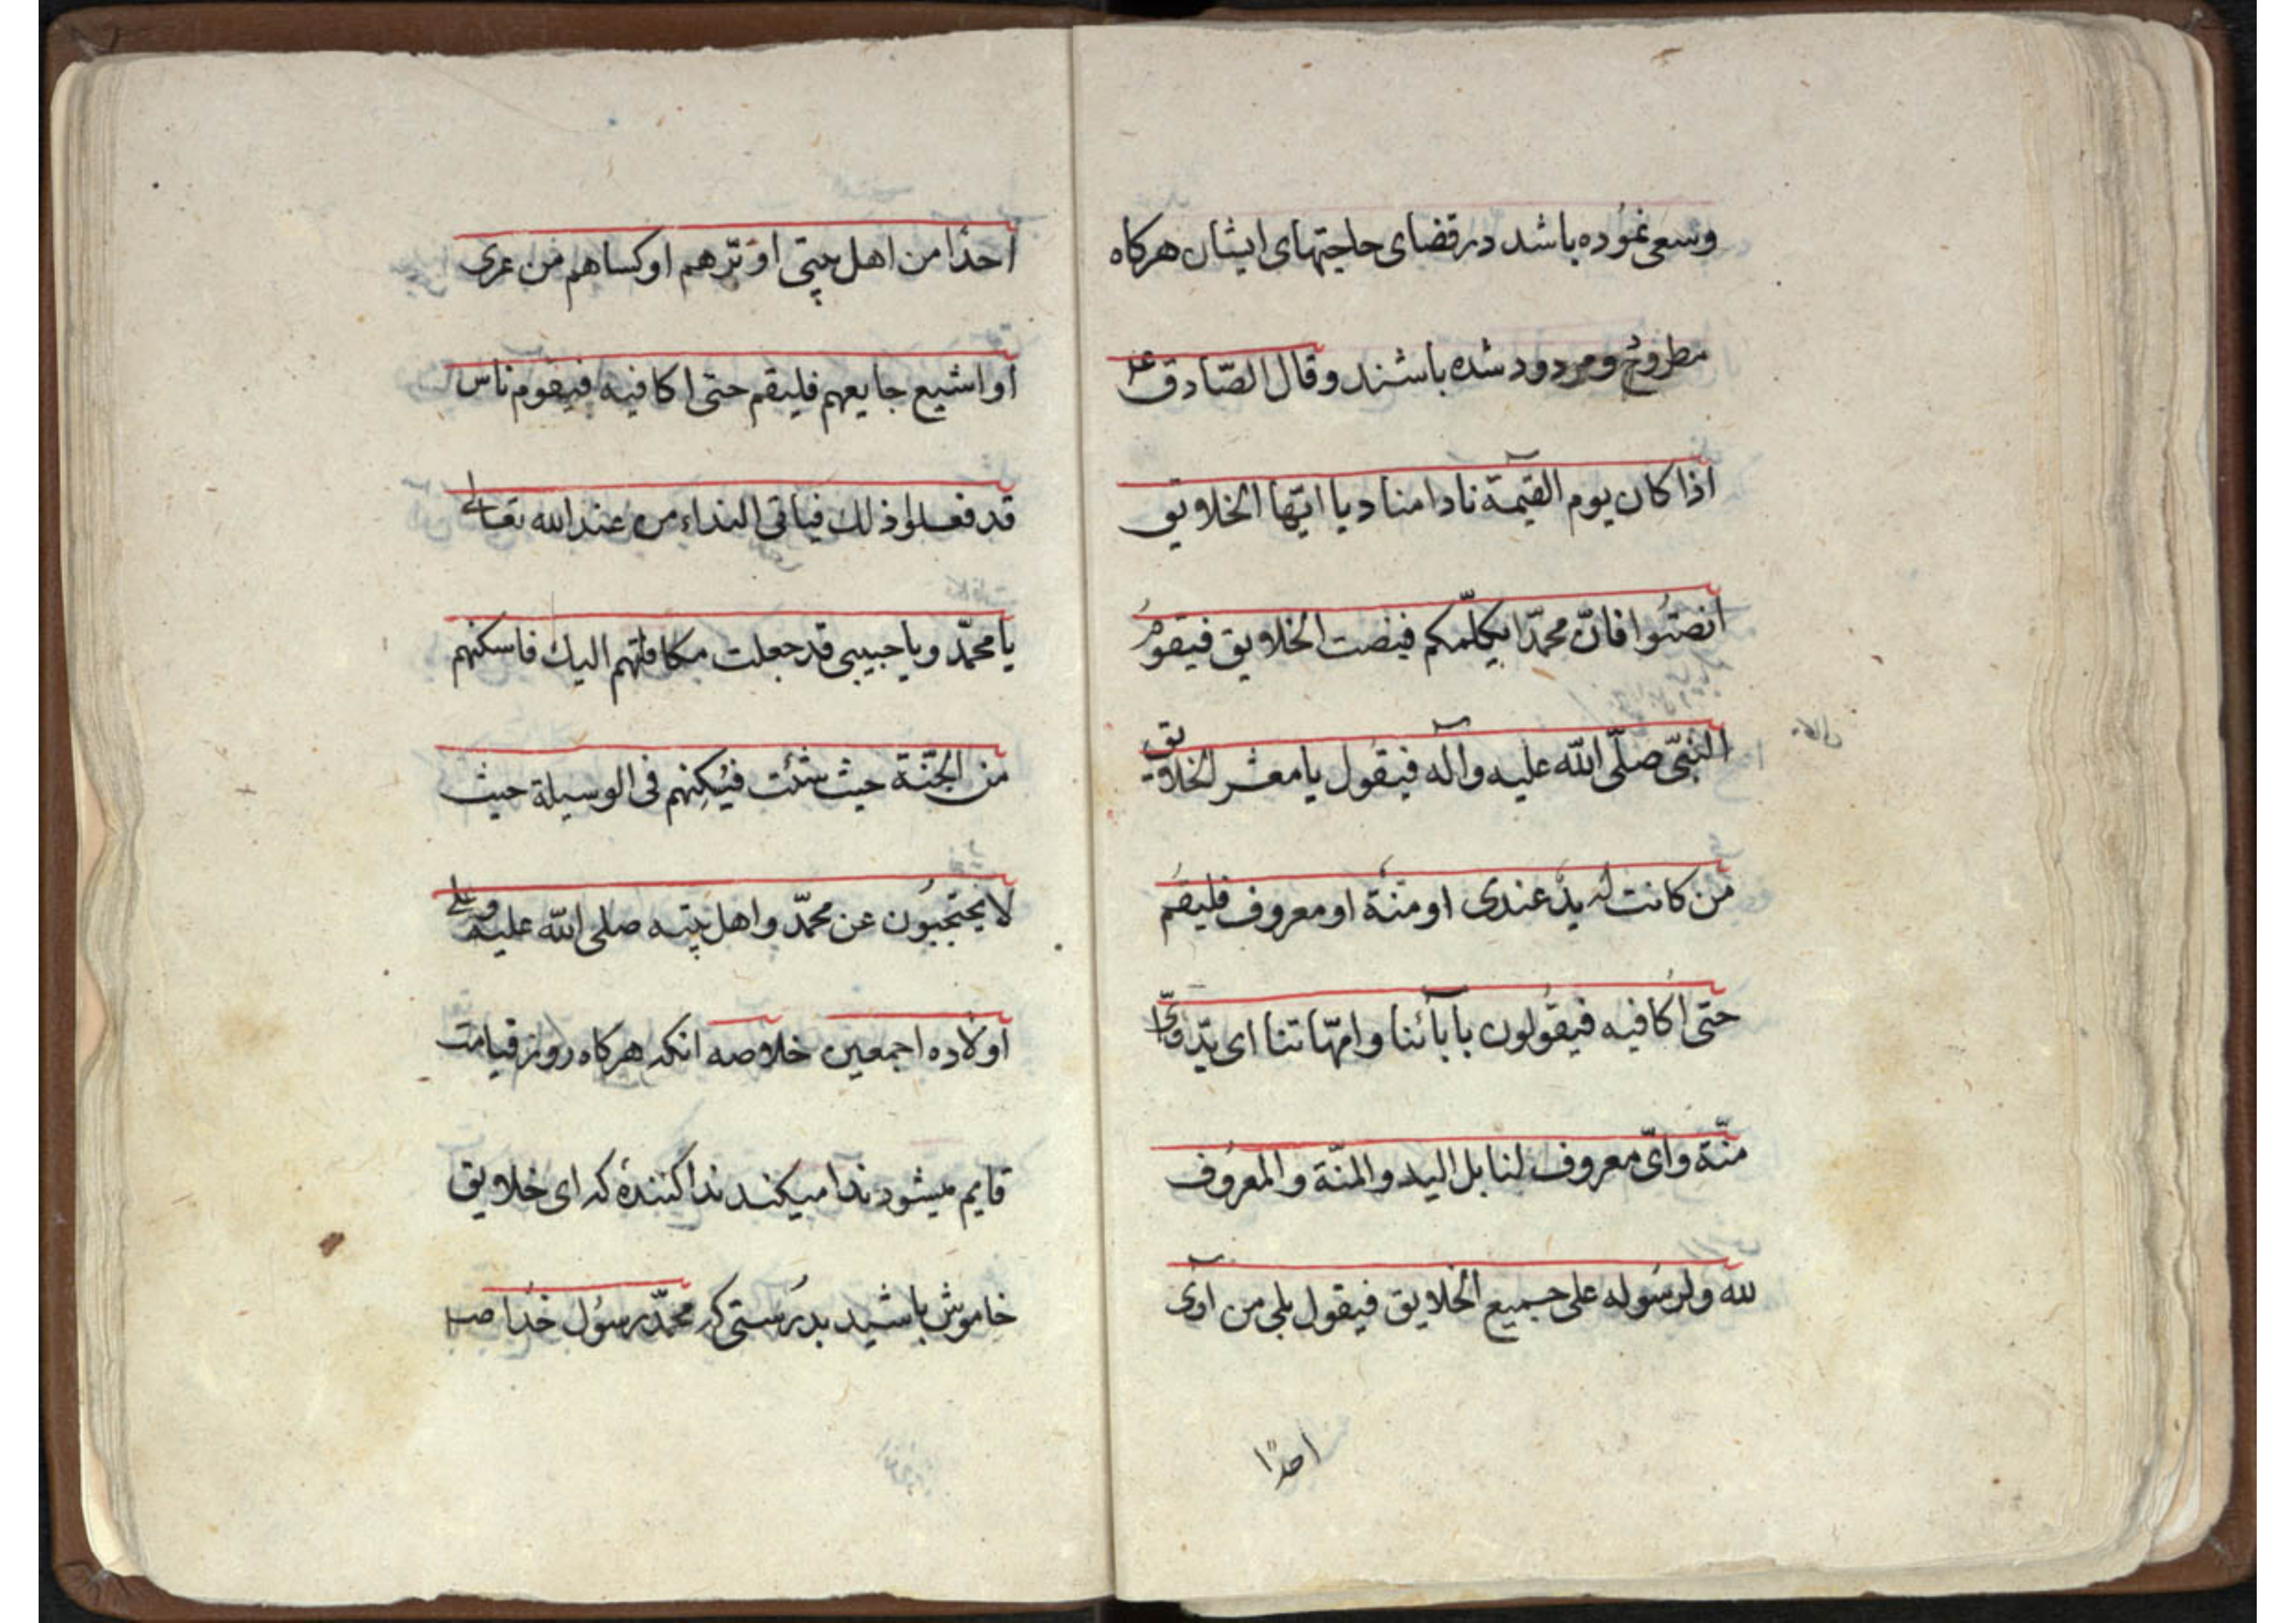 وسعی نموده باشد در قضای حاجتهای ایشان هرکاه
مطروح و مردود شده باشند و قال الصّادق ع
اذا کان یوم القیمة نادا مناد یا ایّها الخلایق
انصتوا فانّ محمّدا یکلّمکم فینصت الخلایق فیقوم
النّبیّ صلّی اللّه علیه وآله فیقول یا معشر الخلایق
من کانت له یدٌ عندی او منّة او معروف فلیقم
حتی اُکافیه فیقولون بابآئنا وامّهاتنا ای یدّ وایّ
منّة وایّ معروف لنا بل الید والمنّة والمعروف
لله ولرسوله علی جمیع الخلایق فیقول بلی من آوی
احدًا
احدًا من اهل بیتی او برّهم او کساهم من عری
او اشبع جایعهم فلیقم حتی اکافیه فیقوم ناس
قد فعلوا ذلك فیاتی النداء من عند الله تعالی
یا محمّد ویا حبیبی قد جعلت مکافاتهم الیك فاسکنهم
من الجنّة حیث شئت فیُسکنهم فی الوسیلة حیث
لا یحتجبون عن محمّد واهل بیته صلی اللّه علیه وعلی
اولاده اجمعین خلاصه انکه هرکاه روز قیامت
قایم میشود ندا میکند ندا کنندهٔ که ای خلایق
خاموش باشید بدرستی که محمّد رسول خدا ص